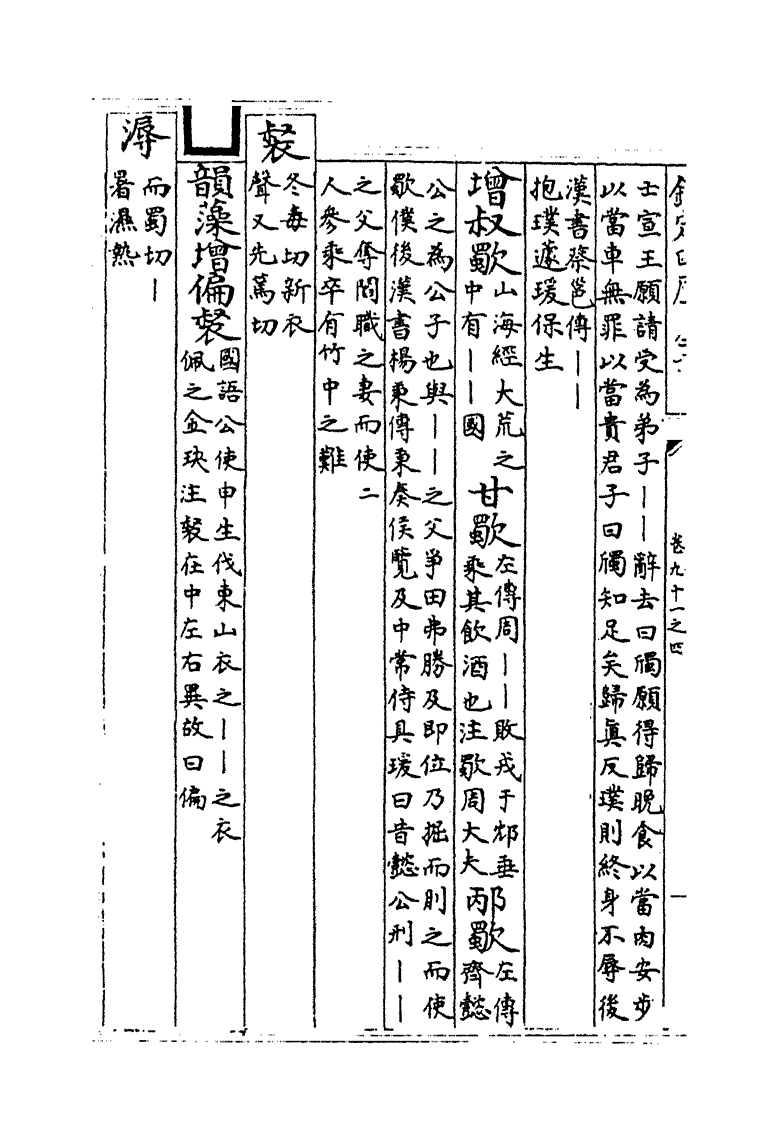 欽定四庫
卷九十一之四
一
士宣王願請受為弟子丨丨辭去曰斶願得歸晚食以當肉安步
以當車無罪以當貴君子曰斶知足矣歸眞反璞則終身不辱後
漢書蔡邕傳丨丨
抱璞蘧瑗保生
增叔歜 山海經大荒之中有丨丨國 甘歜 左傳周丨丨敗戎于邥垂乘其飲酒也注歜周大夫 邴歜 左傳齊懿
公之為公子也與丨丨之父爭田弗勝及即位乃掘而刖之而使
歜僕後漢書楊秉傳秉奏侯覽及中常侍具瑗曰昔懿公刑丨丨
之父奪閻職之妻而使二
人參乘卒有竹中之難
裻 冬毒切新衣
聲又先篤切
韻藻增偏裻 國語公使申生伐東山衣之丨丨之衣
佩之金玦注裻在中左右異故曰偏
溽 而蜀切丨
暑濕熱